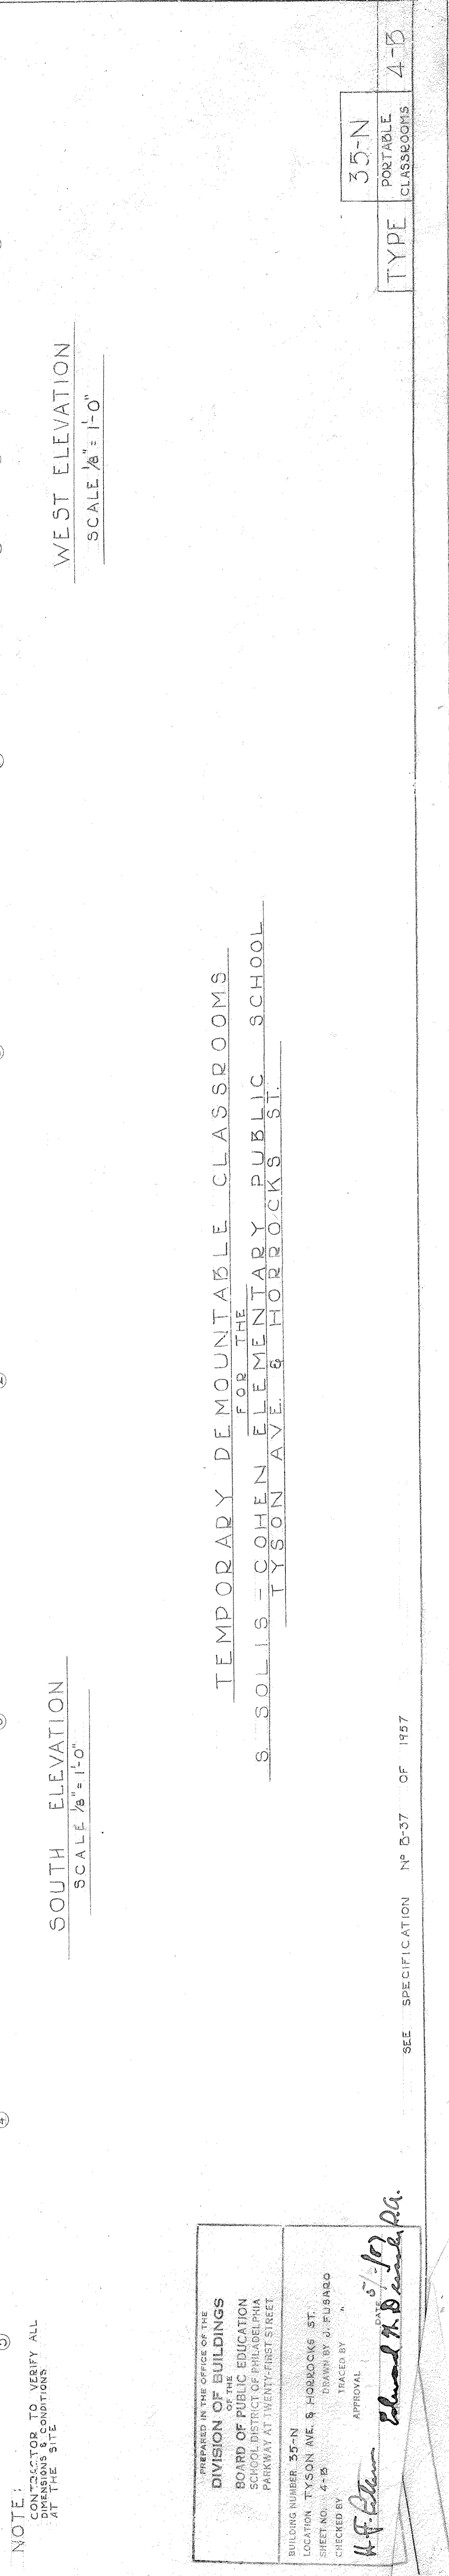 NOTE:
CONTRACTOR TO VERIFY ALL
DIMENSIONS & CONDITIONS
AT THE SITE
SOUTH ELEVATION
SCALE 1/8" = 1'-0"
WEST ELEVATION
SCALE 1/8" = 1'-0"
TEMPORARY DEMOUNTABLE CLASSROOMS
FOR THE
S. SOLIS-COHEN ELEMENTARY PUBLIC SCHOOL
TYSON AVE. & HORROCKS ST.
PREPARED IN THE OFFICE OF THE
DIVISION OF BUILDINGS
OF THE
BOARD OF PUBLIC EDUCATION
SCHOOL DISTRICT OF PHILADELPHIA
PARKWAY AT TWENTY-FIRST STREET
BUILDING NUMBER 35-N
LOCATION TYSON AVE. & HORROCKS ST.
SHEET NO. 4-B DRAWN BY J. FUSARO
CHECKED BY TRACED BY "
APPROVAL DATE
SEE SPECIFICATION Nº B-37 OF 1957
35-N
TYPE PORTABLE CLASSROOMS 4-B